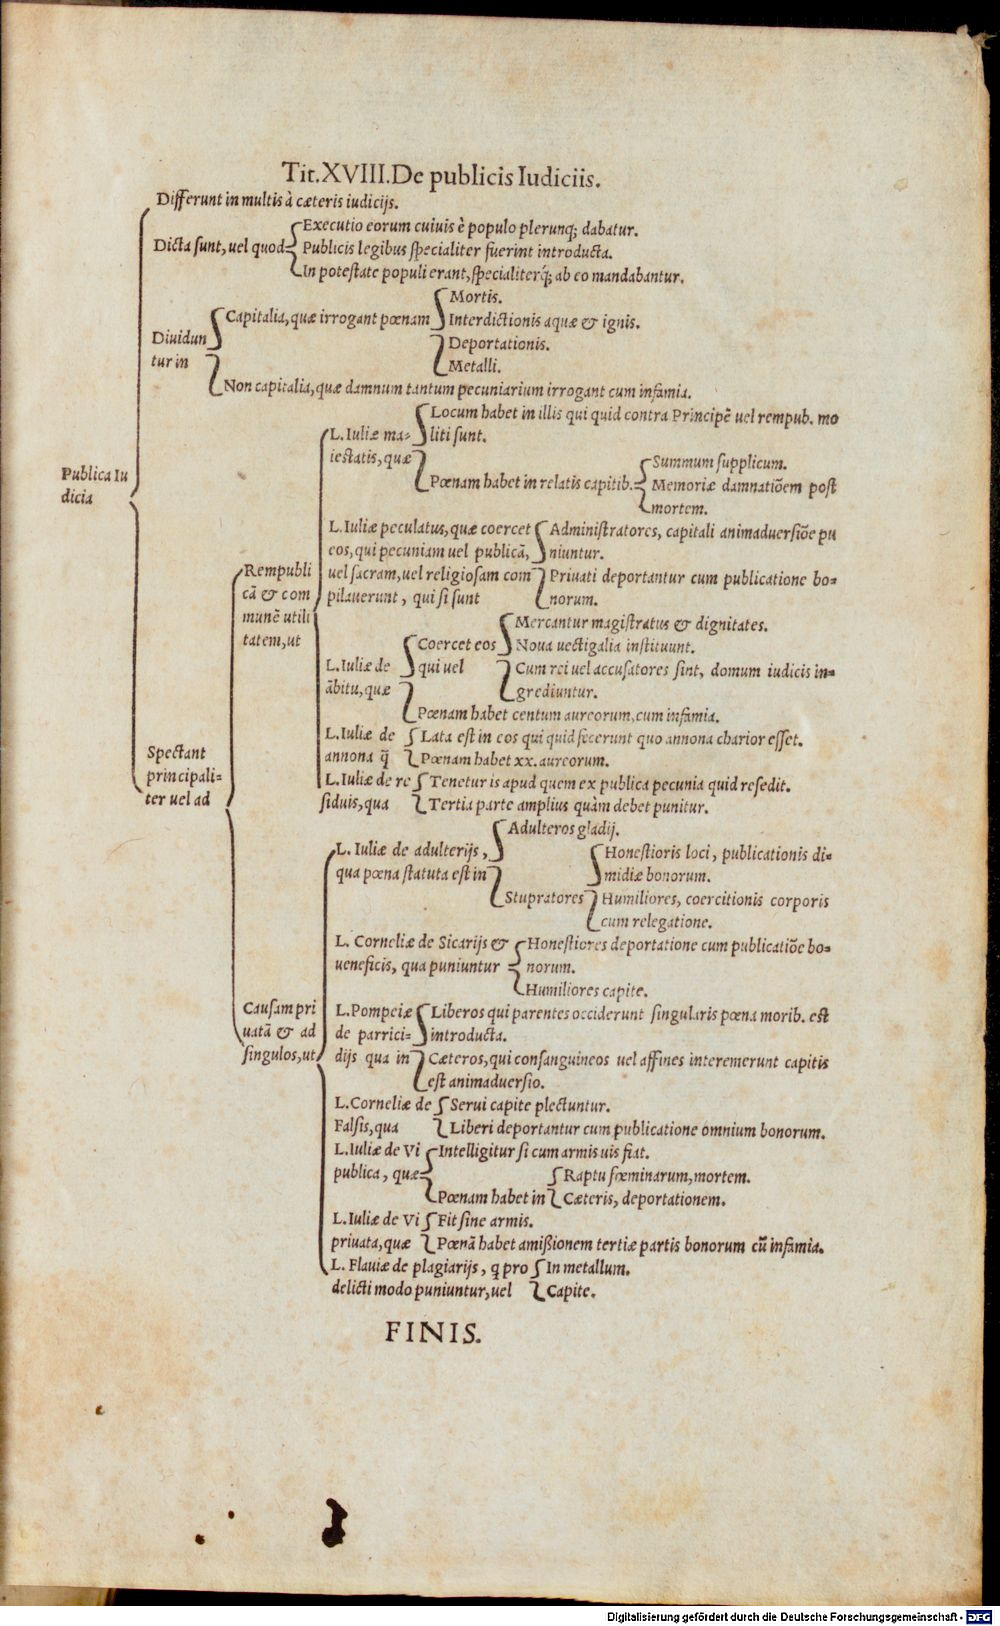 Tit. XVIII. De publicis Iudiciis.
Differunt in multis à cæteris iudicijs.
Executio eorum cuiuis è populo plerunq; dabatur.
Dicta sunt, uel quod
Publicis legibus specialiter fuerint introducta.
In potestate populi erant, specialiterq́; ab eo mandabantur.
Mortis.
Capitalia, quæ irrogant pœnam
Interdictionis aquæ & ignis.
Diuidun
Deportationis.
tur in
Metalli.
Non capitalia, quæ damnum tantum pecuniarium irrogant cum infamia.
Locum habet in illis qui quid contra Principẽ uel rempub. mo
L. Iuliæ ma-
liti sunt.
iestatis, quæ
Summum supplicum.
Publica Iu
dicia
Pœnam habet in relatis capitib.
Memoriæ damnatiõem post
mortem.
L. Iuliæ peculatus, quæ coercet
Administratores, capitali animaduersiõe pu
eos, qui pecuniam uel publicã,
niuntur.
Rempubli
uel sacram, uel religiosam com
Priuati deportantur cum publicatione bo-
cã & com
pilauerunt, qui si sunt
norum.
munẽ utili
Mercantur magistratus & dignitates.
tatem, ut
Coercet eos
Noua uectigalia instituunt.
L. Iuliæ de
qui uel
Cum rei uel accusatores sint, domum iudicis in-
ãbitu, quæ
grediuntur.
Pœnam habet centum aureorum, cum infamia.
L. Iuliæ de
Lata est in eos qui quid fecerunt quo annona charior esset.
Spectant
annona q̃
Pœnam habet xx. aureorum.
principali-
L. Iuliæ de re
Tenetur is apud quem ex publica pecunia quid resedit.
ter uel ad
siduis, qua
Tertia parte amplius quàm debet punitur.
Adulteros gladij.
L. Iuliæ de adulterijs,
Honestioris loci, publicationis di-
qua pœna statuta est in
midiæ bonorum.
Stupratores
Humiliores, coercitionis corporis
cum relegatione.
L. Corneliæ de Sicarijs &
Honestiores deportatione cum publicatiõe bo-
ueneficis, qua puniuntur
norum.
Humiliores capite.
Causam pri
L. Pompeiæ
Liberos qui parentes occiderunt singularis pœna morib. est
uatã & ad
de parrici-
introducta.
singulos, ut
dijs qua in
Cæteros, qui consanguineos uel affines interemerunt capitis
est animaduersio.
L. Corneliæ de
Serui capite plectuntur.
Falsis, qua
Liberi deportantur cum publicatione omnium bonorum.
L. Iuliæ de Vi
Intelligitur si cum armis uis fiat.
publica, quæ
Raptu fœminarum, mortem.
Pœnam habet in
Cæteris, deportationem.
L. Iuliæ de Vi
Fit sine armis.
priuata, quæ
Pœnã habet amißionem tertiæ partis bonorum cũ infamia.
L. Flauiæ de plagiarijs, q pro
In metallum.
delicti modo puniuntur, uel
Capite.
FINIS.
Digitalisierung gefördert durch die Deutsche Forschungsgemeinschaft - DFG